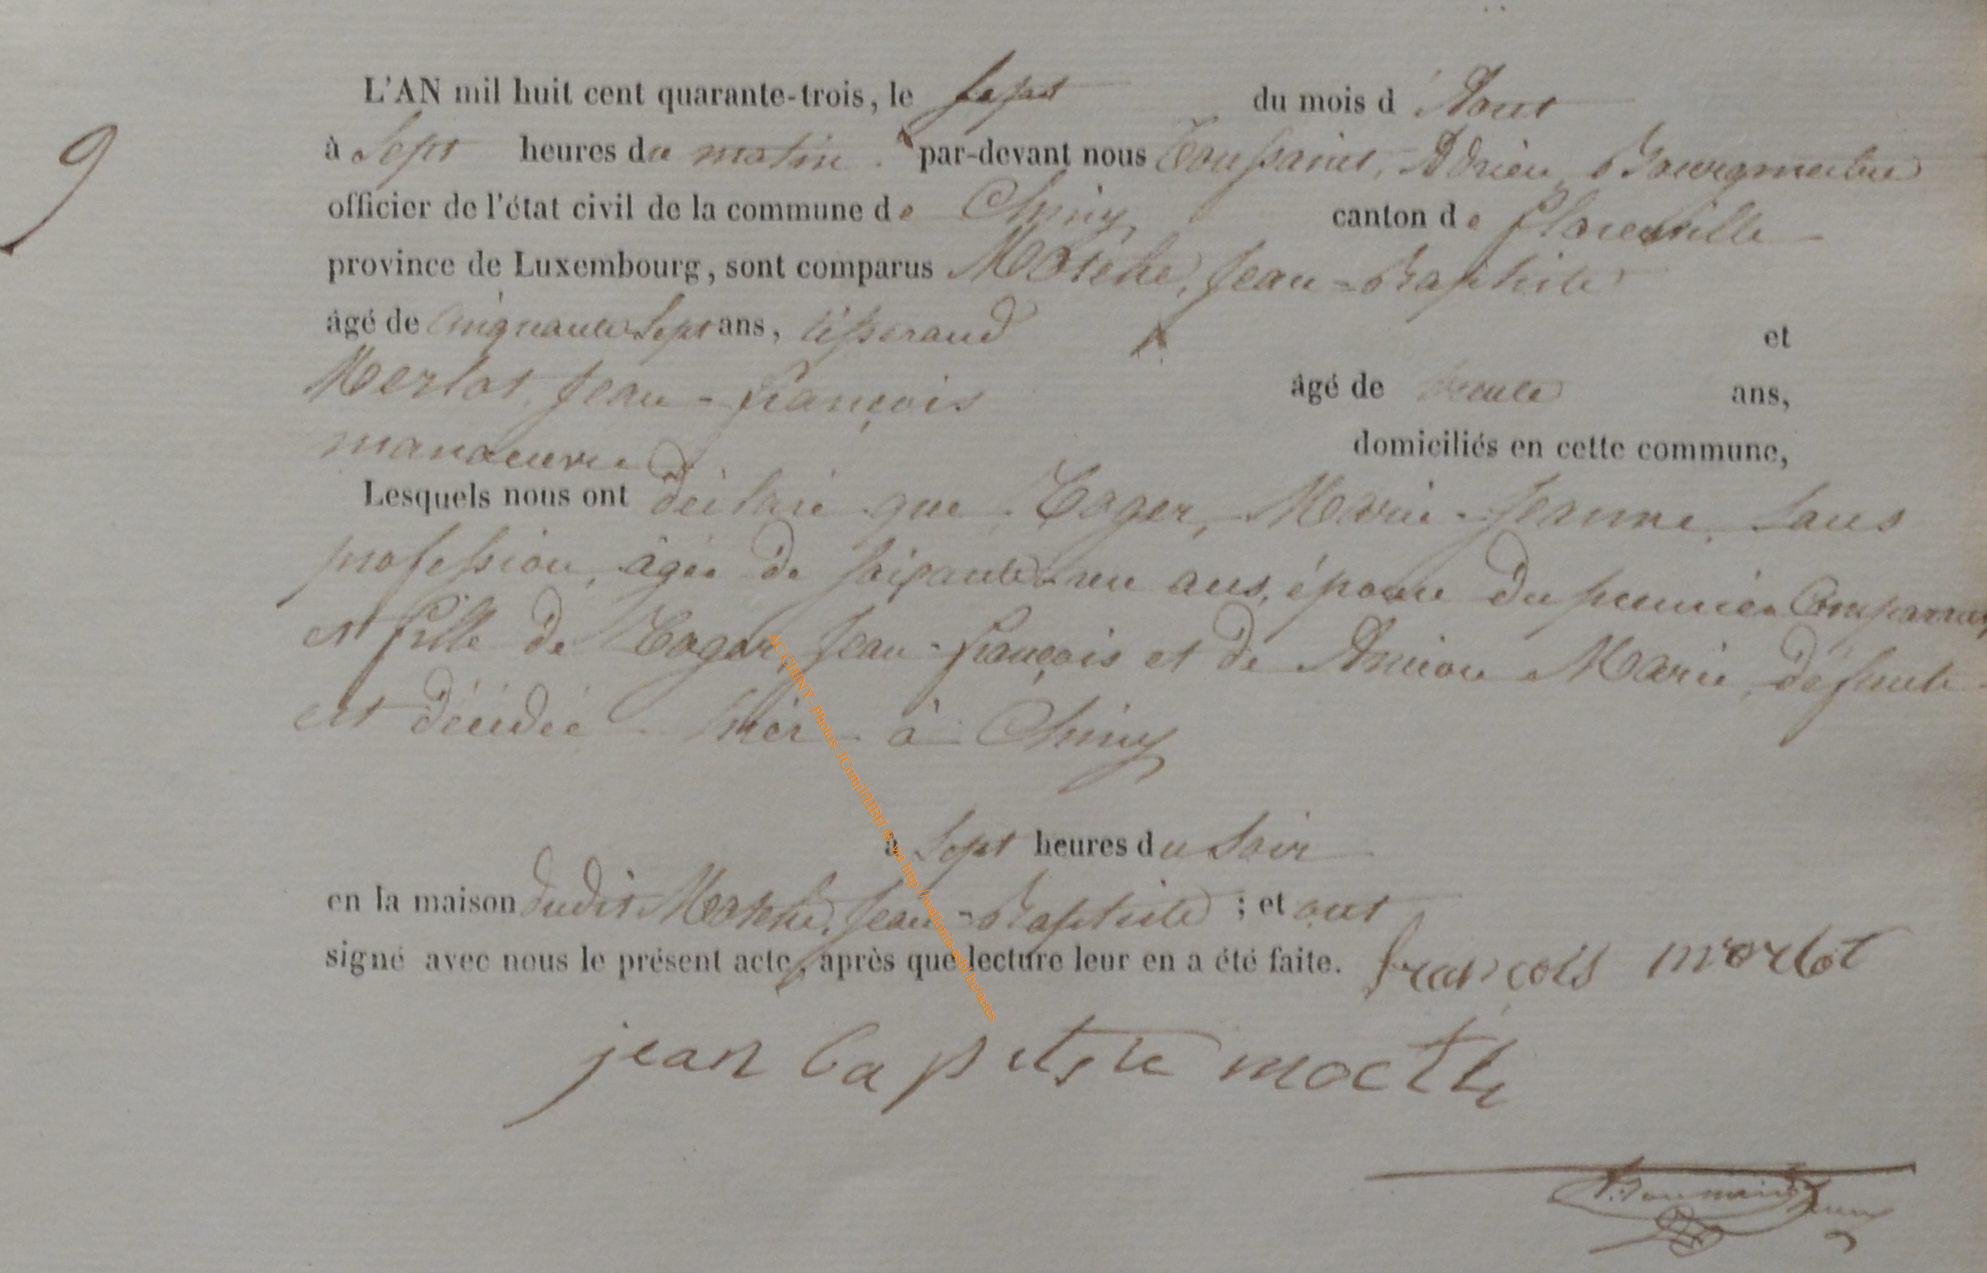 9
L'AN mil huit cent quarante-trois, le sept du mois d'Aout
à Sept heures du matin par-devant nous Toussaint, Adrien, Bourgmestre
officier de l'état civil de la commune de Chiny, canton de florenville
province de Luxembourg, sont comparus Mathé, Jean-Baptiste
âgé de Cinquante Sept ans, tisserand et
Merlot, Jean-françois âgé de trente ans,
manoeuvre domiciliés en cette commune,
Lesquels nous ont déclaré que Marie-Jeanne, Sans
profession, âgée de soixante-un ans, épouse du premier Comparant
et fille de Jean-françois et de Marie, défunte
est décédée hier à Chiny
à Sept heures du Soir
en la maison dudit Jean-Baptiste ; et ont
signé avec nous le présent acte, après que lecture leur en a été faite. françois merlot
jean baptiste